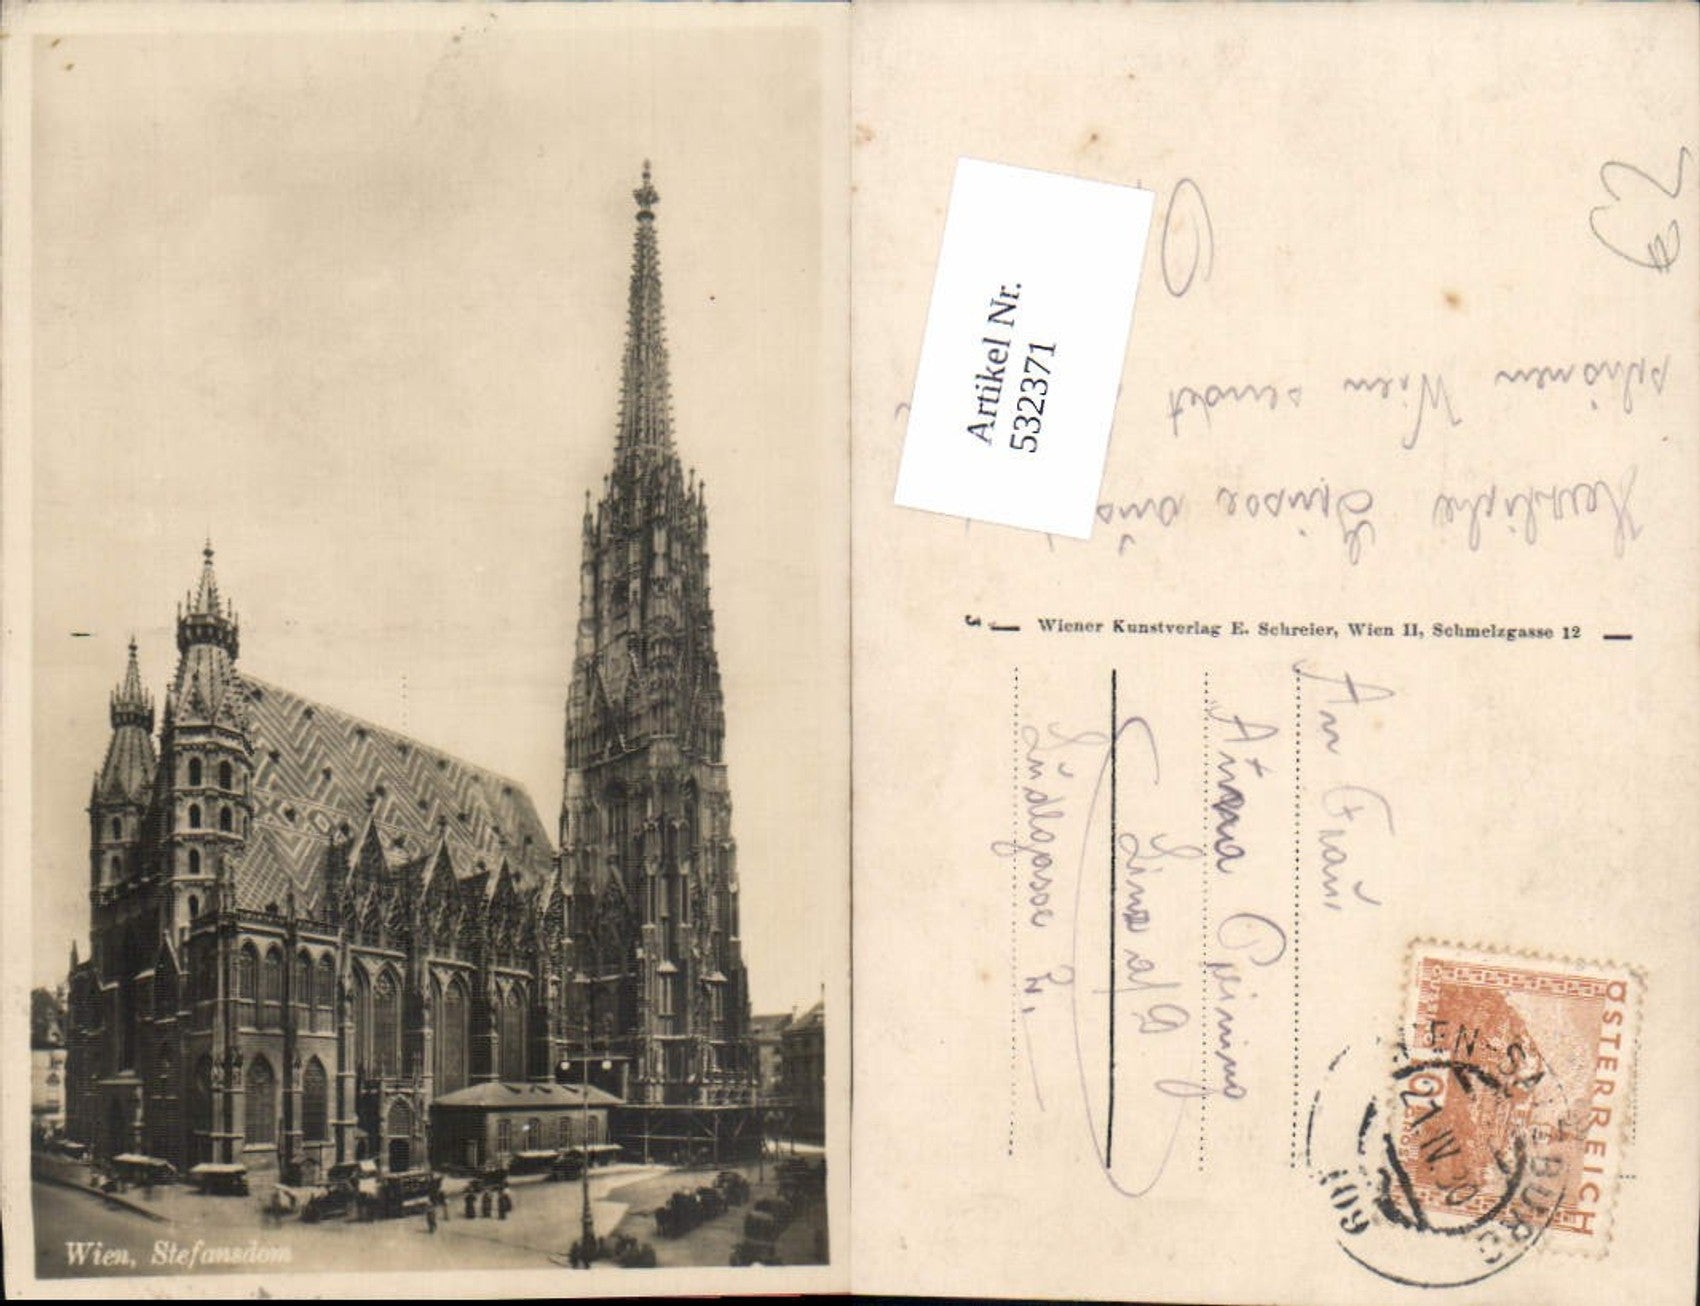 Wien, Stefansdom
Artikel Nr.
532371
Herzliche Grüsse aus
schönen Wien sendet
Wiener Kunstverlag E. Schreier, Wien II, Schmelzgasse 12
3
An Frau
Anna
Linz a/D
ÖSTERREICH
EN-SALZBURG
601
21.IV.